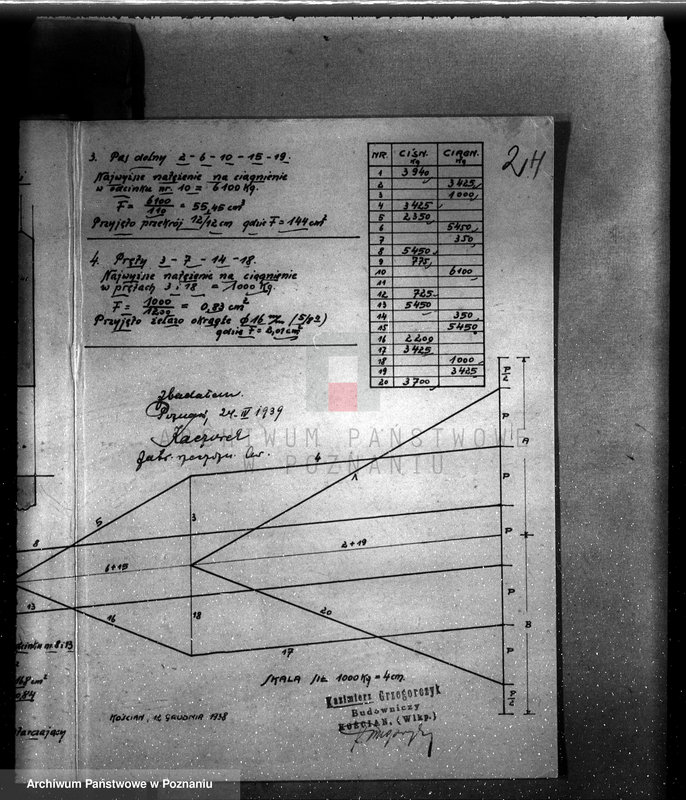 24
3. Pas dolny 2-6-10-15-19.
Najwyższe natężenie na ciągnienie
w odcinku nr. 10 = 6100 Kg.
F = 6100/110 = 55,45 cm²
Przyjęto przekrój 12/12 cm gdzie F = 144 cm²
4. Pręty 3-7-14-18.
Najwyższe natężenie na ciągnienie
w prętach 3 i 18 = 1000 Kg.
F = 1000/1200 = 0,83 cm²
Przyjęto żelazo okrągłe ϕ 16 m/m (5/8")
gdzie F = 2,01 cm²
NR. CIŚN. Kg CIĄGN. Kg
1 3940
2 3425
3 1000
4 3425
5 2350
6 5450
7 350
8 5450
9 775
10 6100
11
12 725
13 5450
14 350
15 5450
16 2200
17 3425
18 1000
19 3425
20 3700
Zbadałem
Poznań, 24-III 1939
Kaczorek
ARCHIWUM PAŃSTWOWE
W POZNANIU
P/2
P
A
P
P
P
P
B
P
P/2
4
1
5
3
8
2+19
6+15
13
16
18
20
17
SKALA SIŁ 1000 Kg = 4 cm.
odcinku nr. 8 i 13
Kazimierz Grzegorczyk
Budowniczy
KOŚCIAN, (Wlkp.)
KOŚCIAN, 12 GRUDNIA 1938
Archiwum Państwowe w Poznaniu